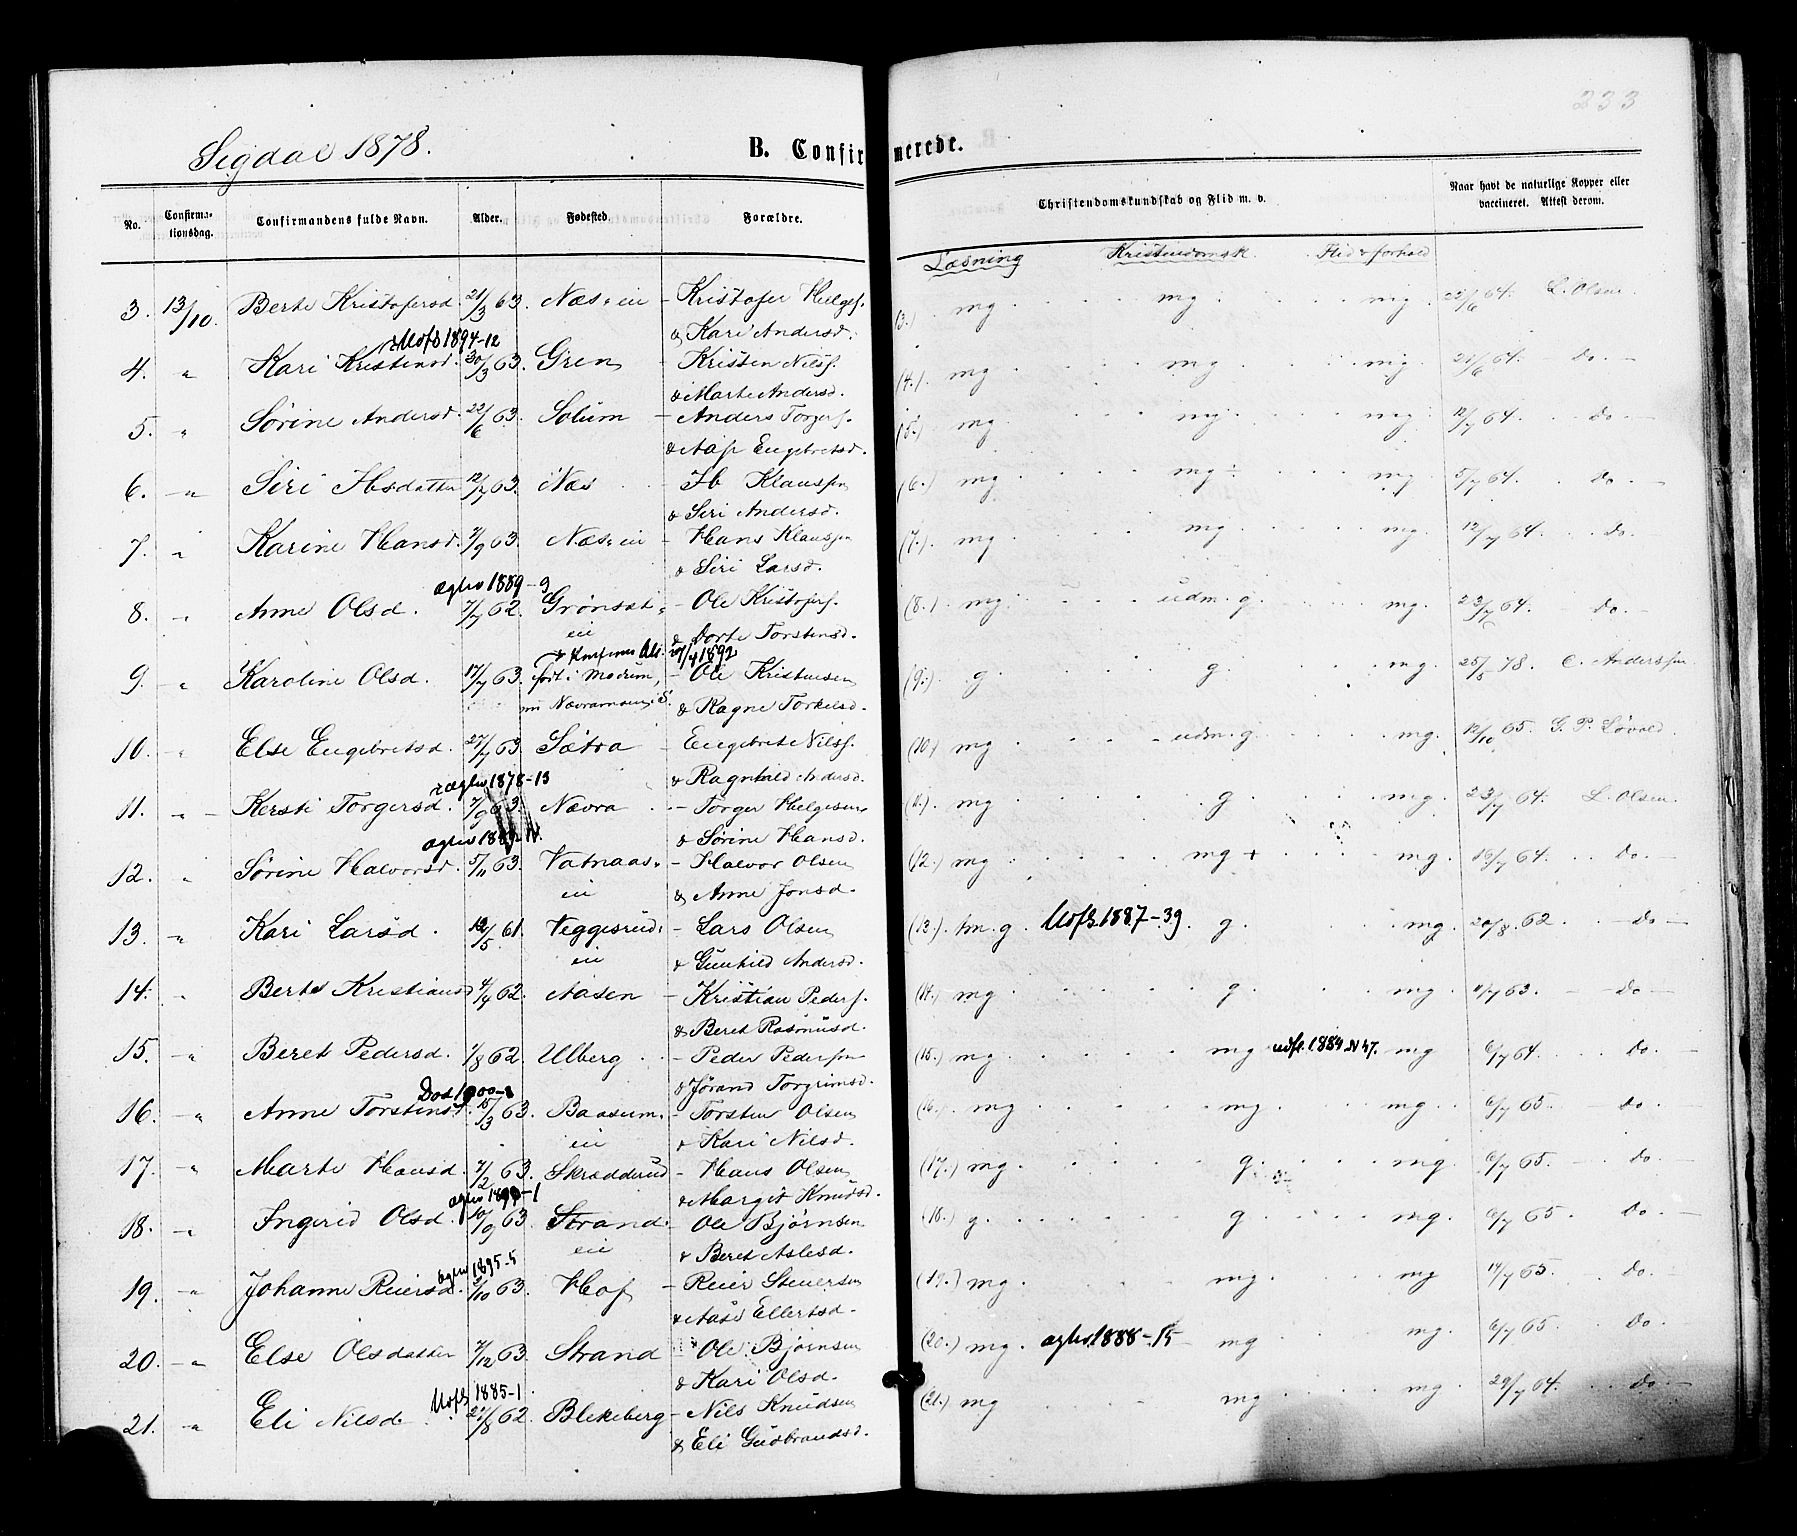 233
Sigdal 1878.
B. Confirmerede.
No. Confirmationsdag. Confirmandens fulde Navn. Alder. Fødested. Forældre. Christendomskundskab og Flid m. v. Naar havt de naturlige Kopper eller vaccineret. Attest derom.
Læsning Kristendomsk. Flid & forhold
3. 13/10. Berte Kristofersd. 21/3 63. Næs-eie - Kristofer Helgesf. (3.) mg mg mg. 25/6 64. L. Olsen
& Kari Andersd.
Uofb 1894-12
4. " Kari Kristensd. 30/3 63. Gren - Kristen Nilsf. (4.) mg mg mg. 21/6 64. - Do. -
& Marte Andersd.
5. " Sørine Andersd. 22/6 63. Solum - Anders Torgersf. (5.) mg mg mg. 12/7 64. Do -
& Aase Engebretsd.
6. - " Siri Ibsdatter 12/7 63. Næs - Ib Klaussen (6.) mg mg ÷ mg. 5/7 64. Do. -
& Siri Andersd.
7. " Karine Hansd. 7/9 63. Næs-eie - Hans Klaussen (7.) mg. mg mg. 12/7 64. Do.
& Siri Larsd.
ægtev 1889-9
8. " Anne Olsd. 7/7 62. Grønset- - Ole Kristofersf. (8.) mg. udm. g. mg. 23/7 64. - Do. -
eie & Dorte Torstensd.
20/4 1892
9. " Karoline Olsd. 17/7 63. født i Modum, - Ole Kristensen (9.) g. g. mg. 25/5 78. C. Anderssen
& Ragne Torkelsd.
10. " Else Engebretsd. 27/7 63. Sætra - Engebret Nilsf. (10) mg udm. g. mg. 12/10 65. G. P. Løvold
& Ragnhild Andersd.
ægtev 1878-13
11. " - Kersti Torgersd. 7/9 63. Nævra - Torger Helgesen (11.) mg g. mg. 23/7 64. L. Olsen.
& Sørine Hansd.
12. " Sørine Halvorsd. 5/11 63. Vatnaas- - Halvor Olsen (12.) mg mg + mg. 16/7 64. Do.
eie & Anne Jonsd.
13. " Kari Larsd. 12/5 61. Veggesrud- - Lars Olsen (13.) tm. g. Uofb 1887-39. g. mg. 20/8 62. - Do -
eie & Gunhild Andersd.
14. " Berte Kristiansd 4/7 62. Aasen - Kristian Pedersf. (14.) mg g. mg. 11/7 63. - Do -
& Beret Rasmusd.
15. - " Beret Pedersd. 1/8 62. Ulberg - Peder Pedersen (15.) mg. mg udfl. 1884 N 47. mg 6/7 64. Do. -
& Jørand Torgrimsd.
Død 1900-8
16. - " Anne Torstensd. 15/3 63. Baasum- - Torsten Olsen (16.) mg. mg. mg. 6/7 65. Do.
eie & Kari Nilsd.
17. - " Marte Hansd. 7/2 63. Skrædderud - Hans Olsen (17.) mg. g. mg. 6/7 65. - Do. -
& Margit Knudsd.
18. " Ingerid Olsd. 10/9 63. Strand- - Ole Bjørnsen (18.) g. g mg. 6/7 65. Do. -
eie & Beret Aslesd.
ægtev 1895-5
19. - " Johanne Reiersd. 5/10 63. Hof - Reier Stenersen (19.) mg. mg. mg 14/7 65. Do.
& Aase Ellertsd.
20. - " Else Olsdatter 7/12 63. Strand - Ole Bjørnsen (20.) mg. ægtev. 1888-15 mg mg. 6/7 65. Do.
& Kari Olsd.
Uofb 1885-1.
21. - " Eli Nilsd. 21/8 62. Blekeberg - Nils Knudsen (21.) mg mg. mg. 29/7 64. Do. -
& Eli Gudbrandsd.